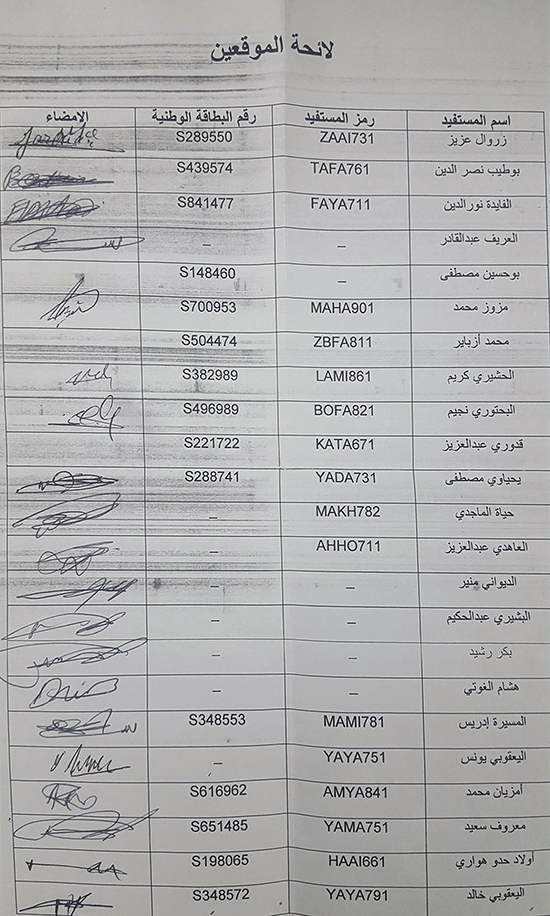 لائحة الموقعين
اسم المستفيد رمز المستفيد رقم البطاقة الوطنية الامضاء
زروال عزيز ZAAI731 S289550
بوطيب نصر الدين TAFA761 S439574
الفايدة نورالدين FAYA711 S841477
العريف عبدالقادر – –
بوحسين مصطفى – S148460
مزوز محمد MAHA901 S700953
محمد أزباير ZBFA811 S504474
الحشيري كريم LAMI861 S382989
البحتوري نجيم BOFA821 S496989
قدوري عبدالعزيز KATA671 S221722
يحياوي مصطفى YADA731 S288741
حياة الماجدي MAKH782 –
العاهدي عبدالعزيز AHHO711 –
الديواني منير – –
البشيري عبدالحكيم – –
بكر رشيد – –
هشام الغوتي – –
المسيرة إدريس MAMI781 S348553
اليعقوبي يونس YAYA751 –
أمزيان محمد AMYA841 S616962
معروف سعيد YAMA751 S651485
أولاد حدو هواري HAAI661 S198065
اليعقوبي خالد YAYA791 S348572